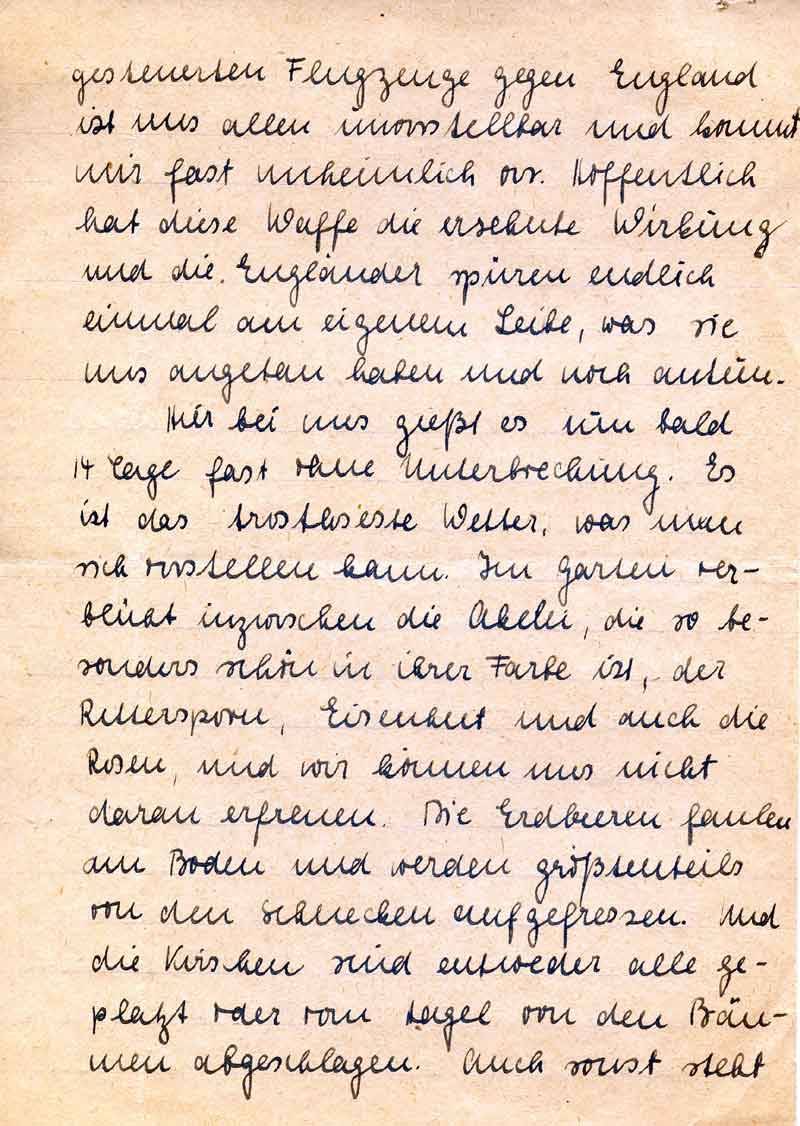 gesteuerten Flugzeuge gegen England
ist uns allen unvorstellbar und kommt
mir fast unheimlich vor. Hoffentlich
hat diese Waffe die ersehnte Wirkung
und die Engländer spüren endlich
einmal am eigenem Leibe, was sie
uns angetan haben und noch antun.
Hier bei uns gießt es nun bald
14 Tage fast ohne Unterbrechung. Es
ist das trostloseste Wetter, was man
sich vorstellen kann. Im Garten ver-
blüht inzwischen die Akelei, die so be-
sonders schön in ihrer Farbe ist, der
Rittersporn, Eisenhut und auch die
Rosen, und wir können uns nicht
daran erfreuen. Die Erdbeeren faulen
am Boden und werden größtenteils
von den Schnecken aufgefressen. Und
die Kirschen sind entweder alle ge-
platzt oder vom Hagel von den Bäu-
men abgeschlagen. Auch sonst steht